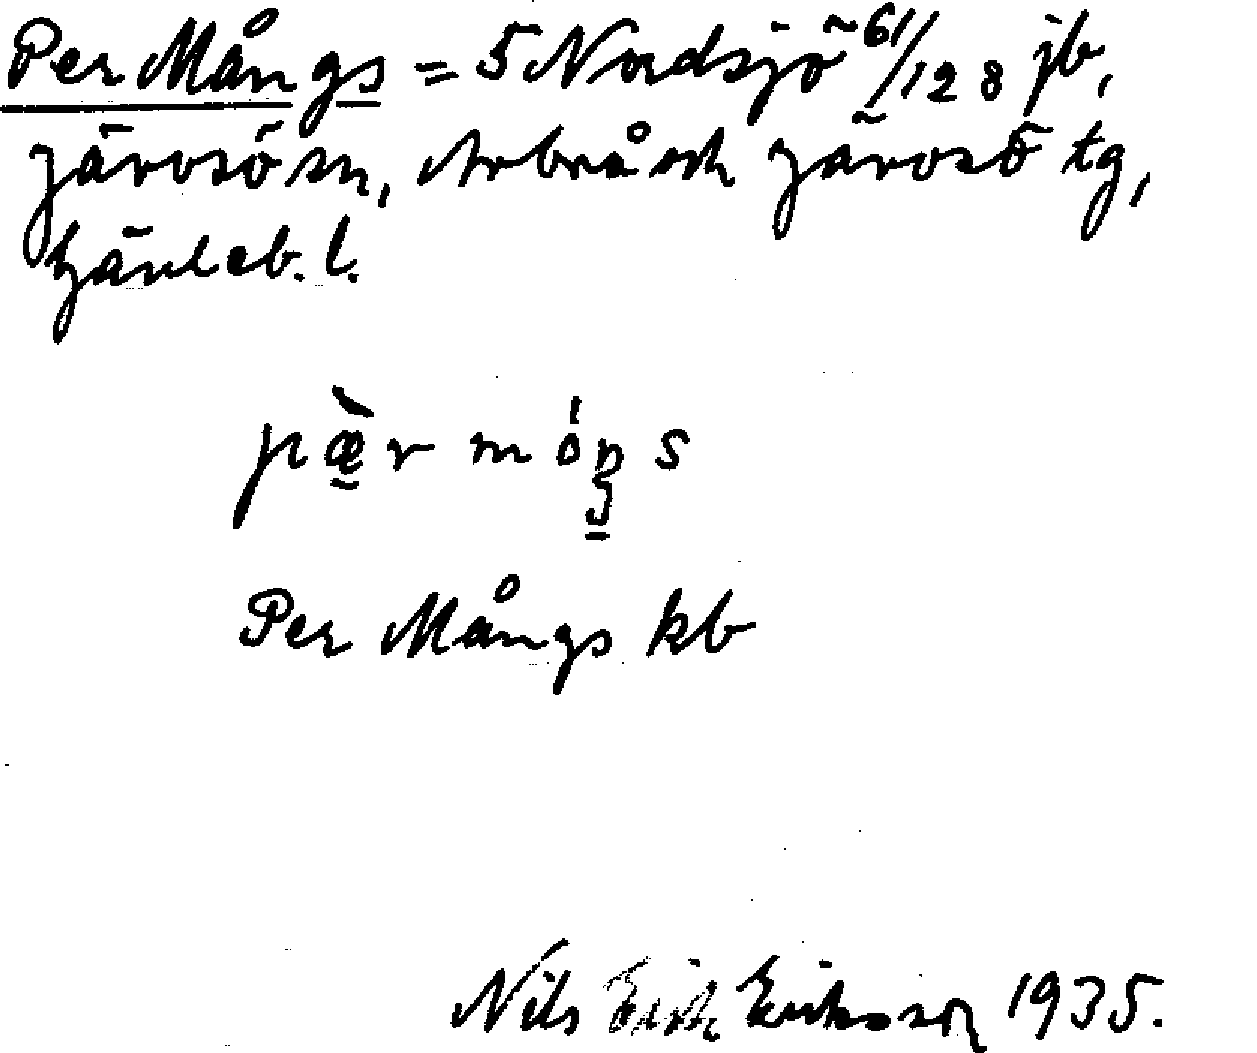 Per Mångs = 5 Nordsjö 61/128 jb,
Järvsö sn, Arbrå och Järvsö tg,
Gävleb. l.
pæ̀r móŋs
Per Mångs kb
Nils Erik Eriksson 1935.